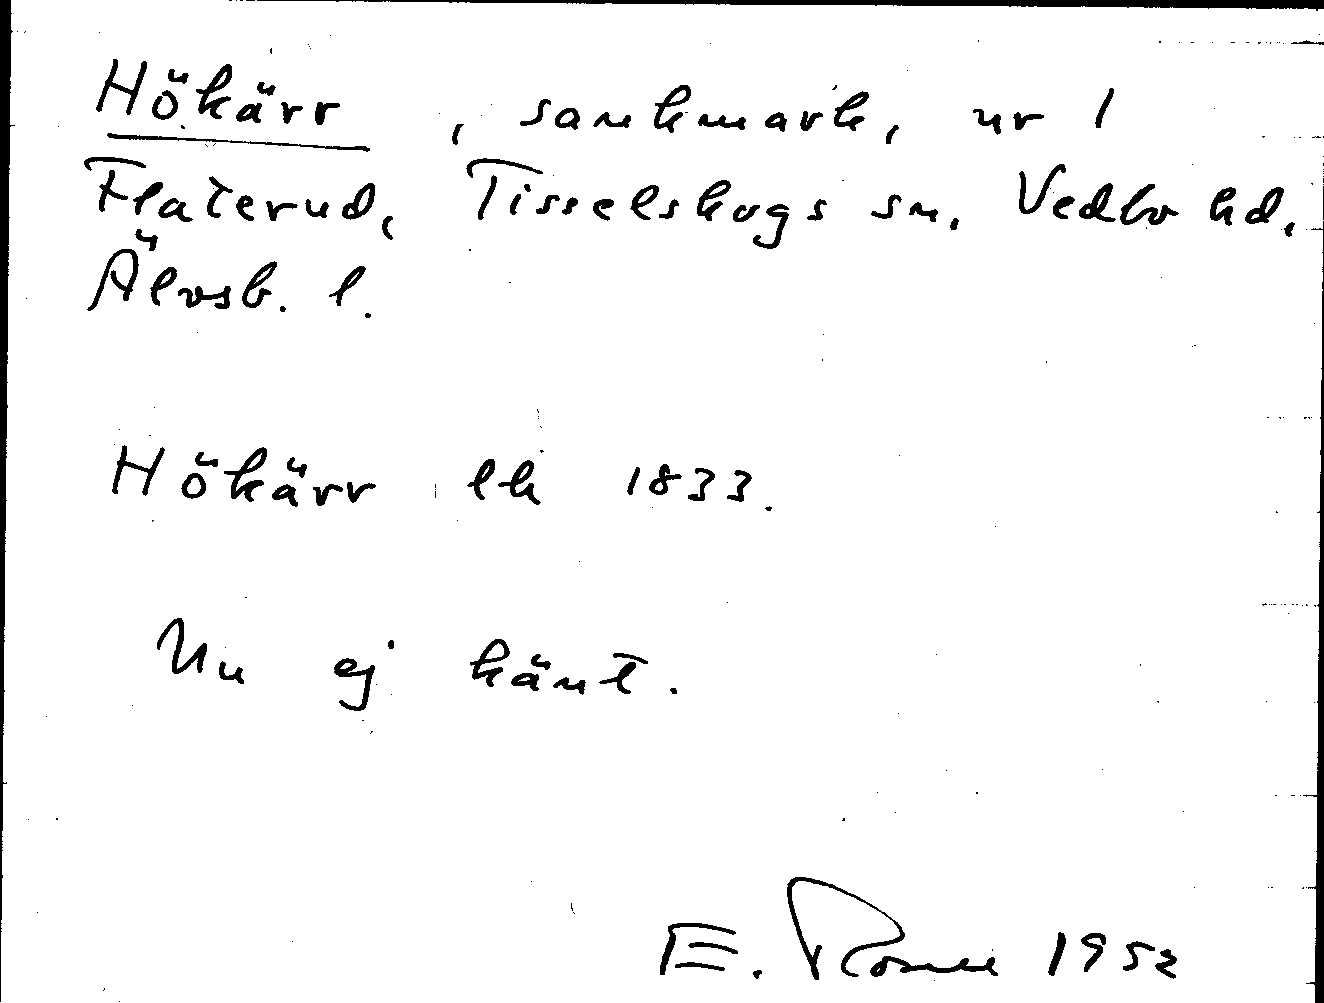 Hökärr, sankmark, nr 1
Flaterud, Tisselskogs sn. Vedbo hd.
Älvsb. l.
Hökärr lh 1833.
Nu ej känt.
E. 1952